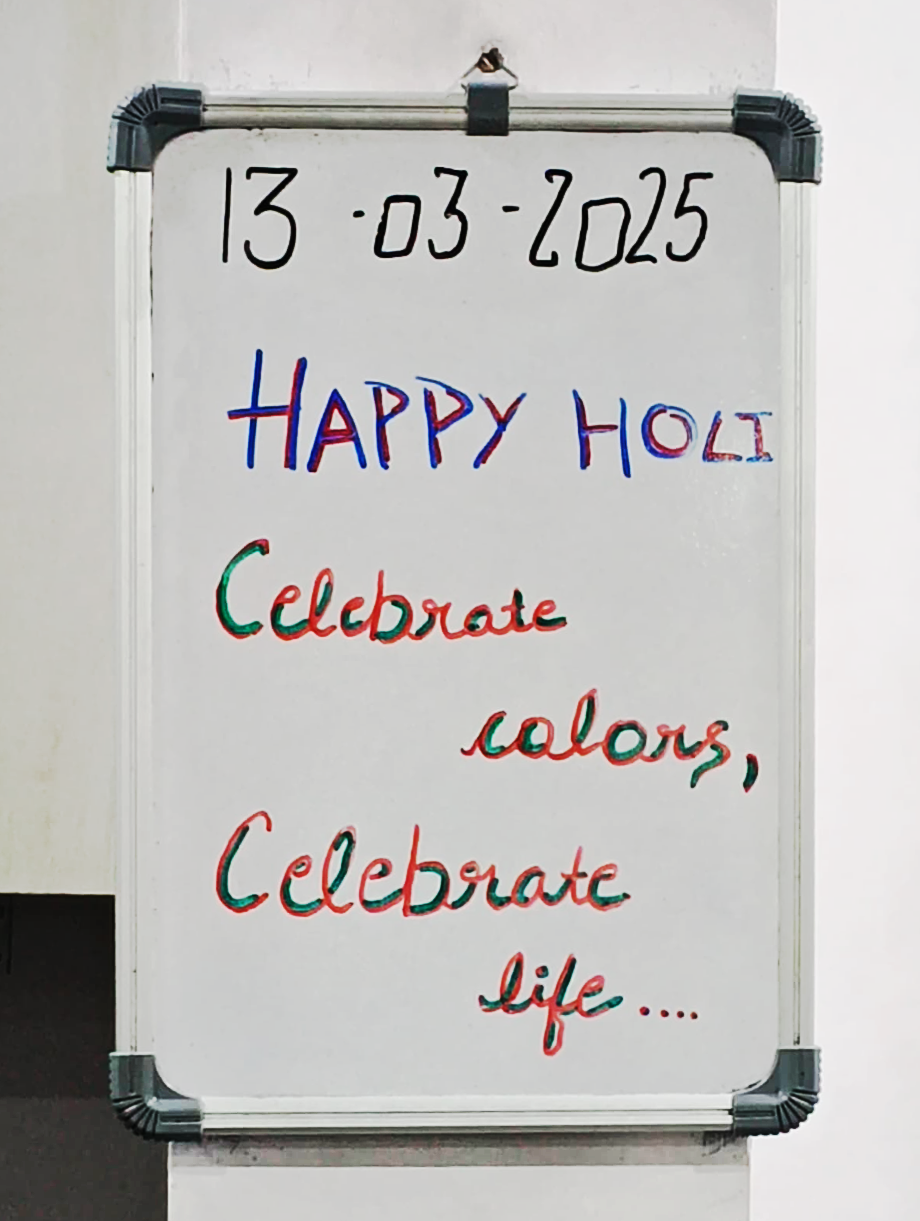 13-03-2025
HAPPY HOLI
Celebrate
colors,
Celebrate
life....